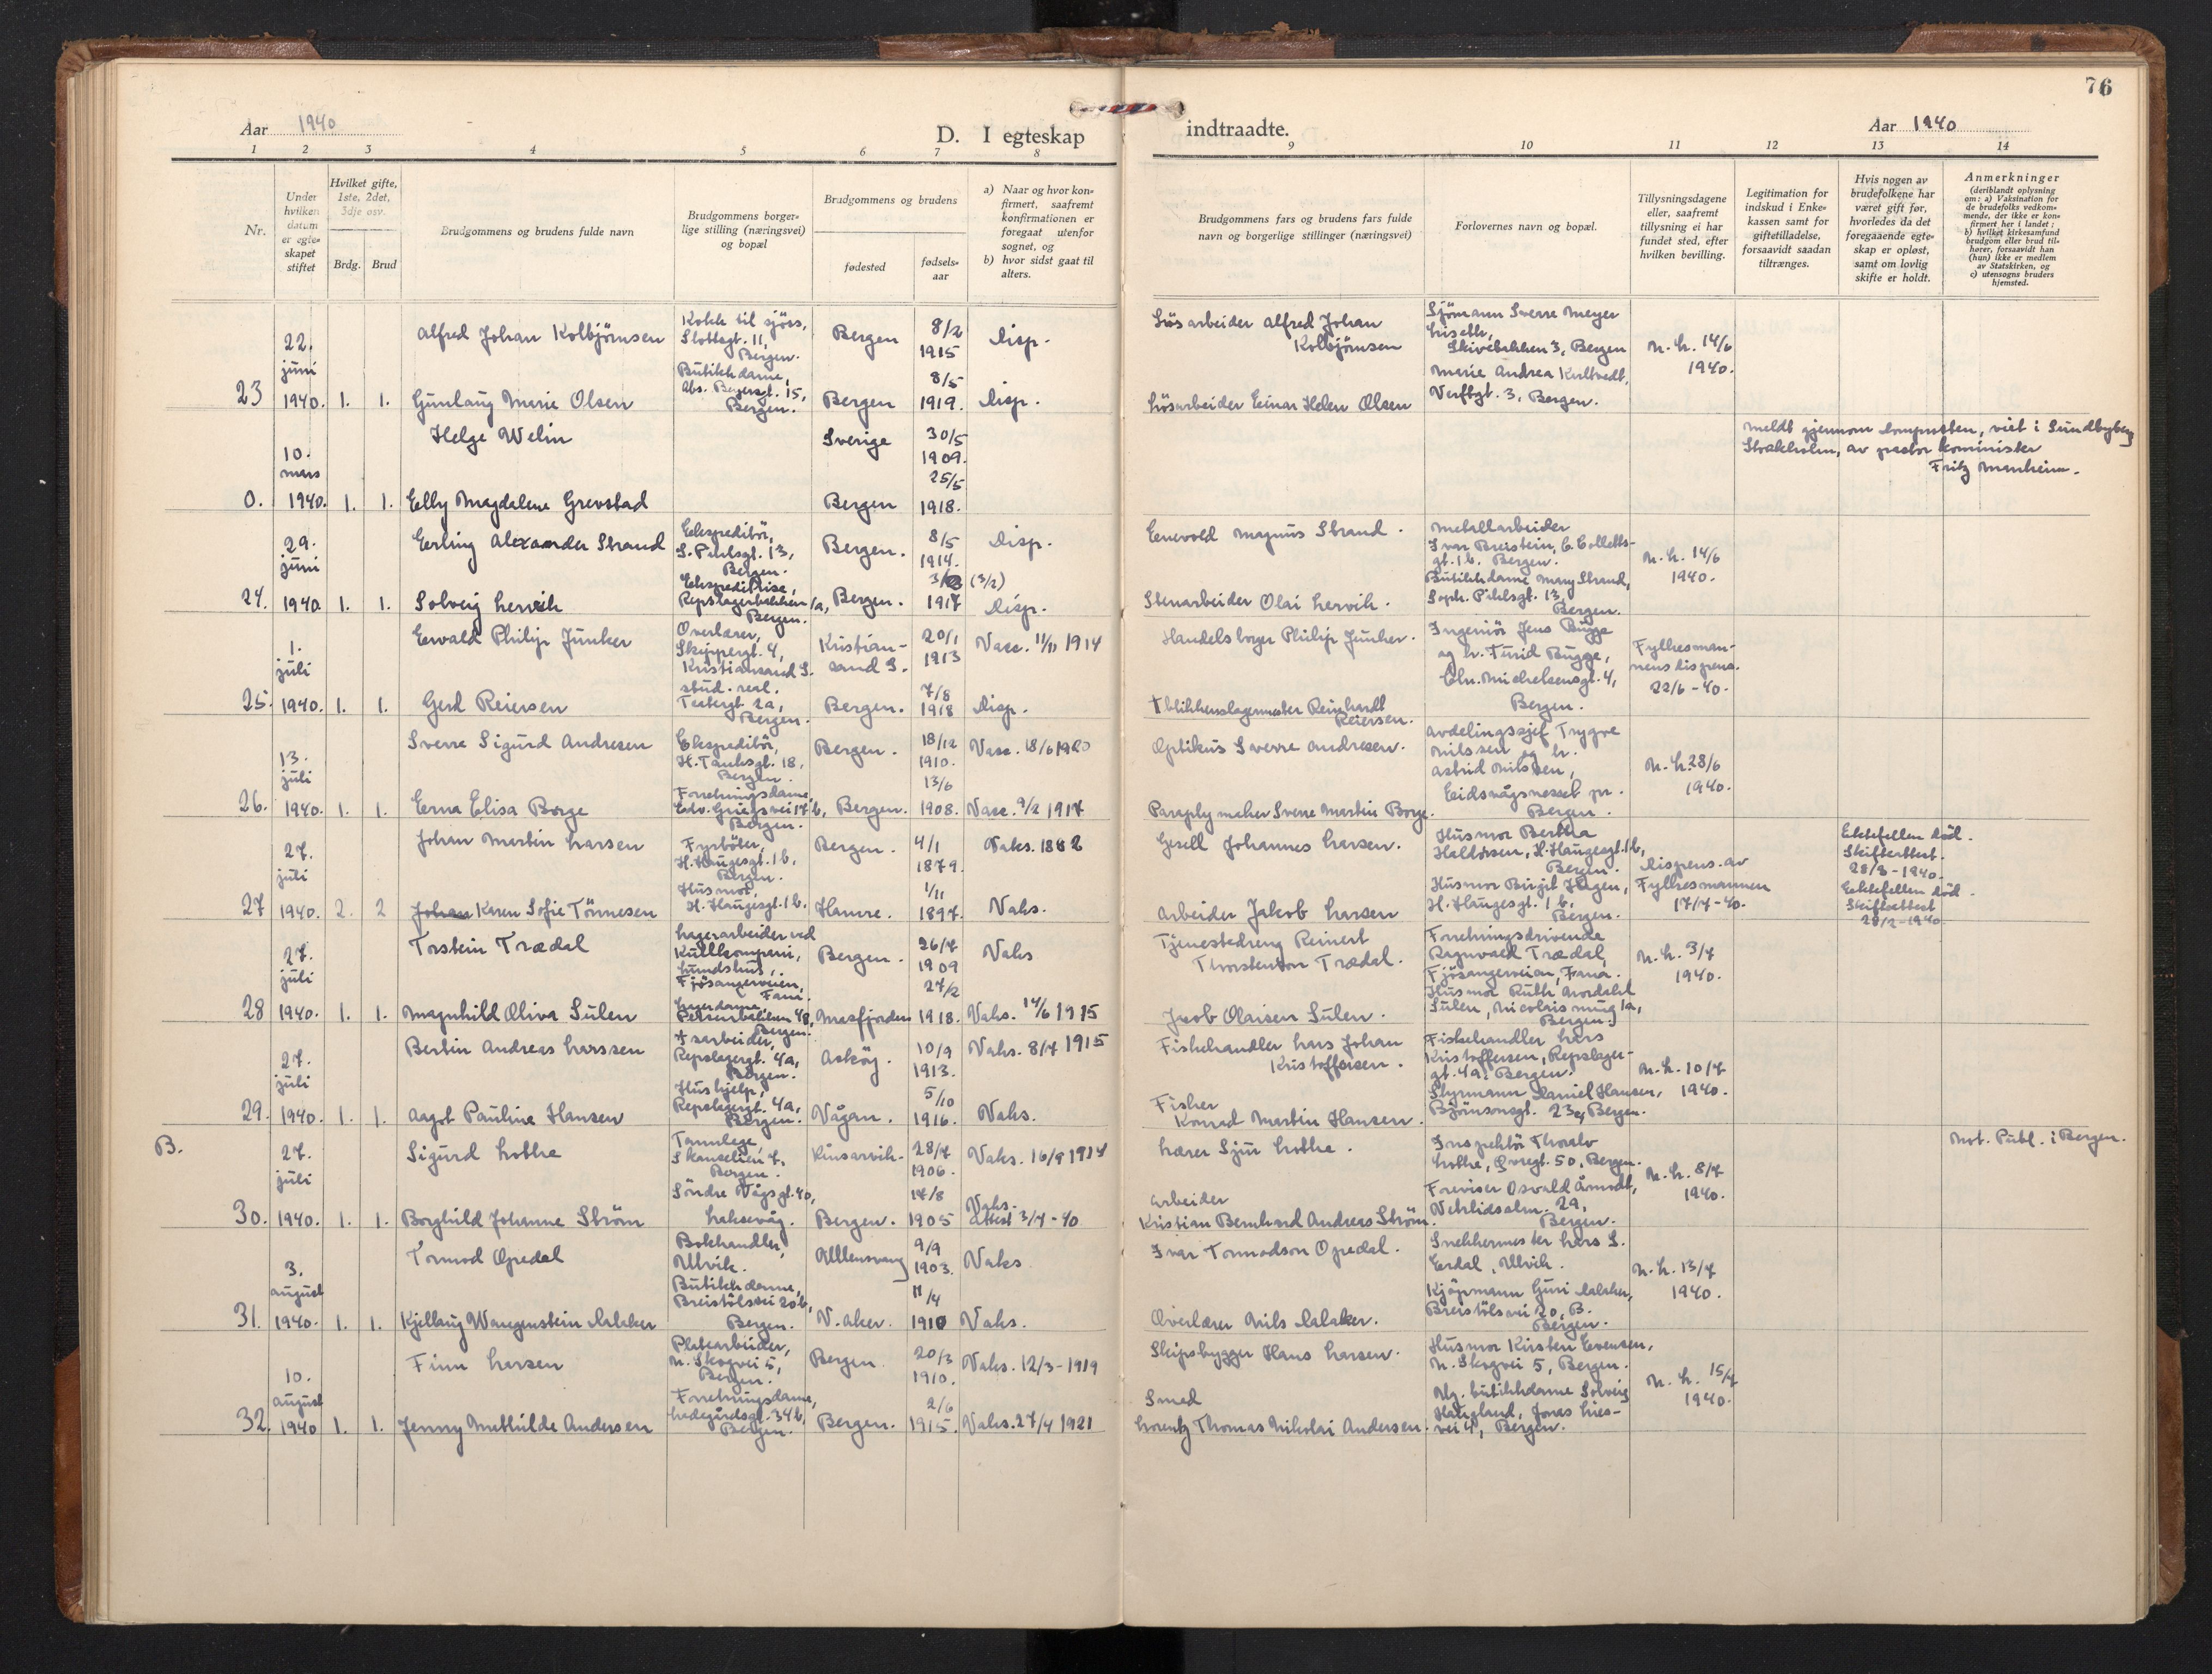 76
Aar 1940
D. I egteskap indtraadte.
Aar 1940
1 2 3 4 5 6 7 8 9 10 11 12 13 14
Nr.
Under hvilken datum er egteskapet stiftet
Hvilket gifte, 1ste, 2det, 3dje osv.
Brdg. Brud
Brudgommens og brudens fulde navn
Brudgommens borgerlige stilling (næringsvei) og bopæl
Brudgommens og brudens
fødested
fødselsaar
a) Naar og hvor konfirmert, saafremt konfirmationen er foregaat utenfor sognet, og
b) hvor sidst gaat til alters.
Brudgommens fars og brudens fars fulde navn og borgerlige stillinger (næringsvei)
Forlovernes navn og bopæl.
Tillysningsdagene eller, saafremt tillysning ei har fundet sted, efter hvilken bevilling.
Legitimation for indskud i Enkekassen samt for giftetilladelse, forsaavidt saadan tiltrænges.
Hvis nogen av brudefolkene har været gift før, hvorledes da det foregaaende egteskap er opløst, samt om lovlig skifte er holdt.
Anmerkninger
(deriblandt oplysning om: a) Vaksination for de brudefolks vedkommende, der ikke er konfirmert her i landet; b) hvilket kirkesamfund brudgom eller brud tilhører, forsaavidt han (hun) ikke er medlem av Statskirken, og c) utensogns bruders hjemsted.
23 22. juni 1940. 1. 1.
Alfred Johan Kolbjørnsen
Kokk til sjøss, Slottsgt. 11, Bergen.
Bergen 8/2 1915 Disp.
Løsarbeider Alfred Johan Kolbjørnsen
Sjømann Sverre Meyer
Skivebakken 3, Bergen
N. h. 14/6 1940.
Gunlaug Marie Olsen
Butikkdame, Abs. Beyersgt. 15, Bergen.
Bergen 8/5 1919. Disp.
Løsarbeider Einar Helen Olsen
Marie Andrea Kultvedt, Verftsgt. 3, Bergen.
0. 10. mars 1940. 1. 1.
Helge Welin
Sverige 30/5 1909.
Meldt gjennom domprosten, viet i Sundbyberg
Stockholm, av pastor kominister
Fritz Manheim.
Elly Magdalene Grevstad
Bergen 25/5 1918.
24. 29. juni 1940 1. 1.
Erling Alexander Strand
Ekspeditør, S. Pihlsgt. 13, Bergen.
Bergen. 8/5 1914. Disp.
Enevold Magnus Strand.
Metallarbeider Ivar Breistein, C. Collettsgt. 1 b. Bergen.
N. h. 14/6 1940.
Solveig Lervik
Ekspeditrise, Repslagerbakken 1a, Bergen.
Bergen. 1917 (3/2) Disp.
Stenarbeider Olai Lervik.
Butikkdame Mary Strand, Soph. Pihlsgt. 13, Bergen.
25. 1. juli 1940. 1. 1.
Ewald Philip Junker
Overlærer, Skippergt. 4, Kristiansand S.
Kristiansand S. 20/1 1913 Vacc. 11/11 1914
Handelsborger Philip Junker.
Ingeniør Jens Bugge og fr. Turid Bugge, Chr. Michelsensgt. 4, Bergen.
Fylkesmannens dispens. 22/6-40.
Gerd Reiersen
stud. real. Teatergt. 2a, Bergen.
Bergen. 7/8 1918 Disp.
† blikkenslagermester Reinhardt Reiersen.
26. 13. juli 1940. 1. 1.
Sverre Sigurd Andresen
Ekspeditør, H. Tanksgt. 18, Bergen.
Bergen. 18/12 1910. Vacc. 18/6 1920
Optikus Sverre Andresen.
Avdelingssjef Trygve Nilssen og fr. Astrid Nilssen, Eidsvågsnesset pr. Bergen.
N. h. 28/6 1940.
Erna Elisa Borge
Forretningsdame, Edv. Griegsvei 17 b, Bergen.
Bergen. 13/6 1908. Vacc. 9/2 1917
Paraplymaker Sverre Martin Borge.
27 27. juli 1940. 2. 2
Johan Martin Larsen
Fyrbøter, H. Haugesgt. 1 b, Bergen.
Bergen. 4/1 1879. Vaks. 1882
Gesell Johannes Larsen.
Husmor Bertha Haldorsen, H. Haugesgt. 1 b, Bergen.
Dispens. av Fylkesmannen 17/7-40.
Ektefellen død. Skifteattest. 28/3-1940.
Johan Karen Sofie Tønnesen
Husmor, H. Haugesgt. 1 b.
Hamre. 1/11 1897. Vaks.
Arbeider Jakob Larsen
Husmor Birgit Hagen, H. Haugesgt. 1 b, Bergen.
Ektefellen død. Skifteattest 28/2-1940
28 27. juli 1940. 1. 1.
Torstein Trædal
Lagerarbeider ved Kullkompani, Lundshus, Fjøsangerveien, Fana.
Bergen. 26/7 1909 Vaks
Tjenestedreng Reinert Thorstenson Trædal.
Forretningsdrivende Ragnvald Trædal, Fjøsangerveien, Fana.
N. h. 3/7 1940.
Magnhild Oliva Sulen
Lagerdame, 48, Bergen.
Masfjorden 27/2 1918. Vaks. 14/6 1915
Jacob Olaisen Sulen.
Husmor Ruth Mordalel Sulen, Nicolaismug 1a, Bergen.
29. 27. juli 1940. 1. 1.
Bertin Andreas Larssen
Repslagergt. 4a, Bergen.
Askøy. 10/9 1913. Vaks. 8/7 1915
Fiskehandler Lars Johan Kristoffersen.
Fiskehandler Lars Kristoffersen, Repslagergt. 4a, Bergen.
N. h. 10/7 1940.
Aagot Pauline Hansen
Hushjelp, Repslagergt. 4a, Bergen.
Vågan. 5/10 1916. Vaks.
Fisker Konrad Martin Hansen.
Styrmann Daniel Hansen, Bjørnsonsgt. 23, Bergen.
B. 30. 27. juli 1940. 1. 1.
Sigurd Lothe
Tannlege, Skanselien 7, Bergen.
Kinsarvik. 28/7 1906. Vaks. 16/9 1914
Lærer Sjur Lothe.
Inspektør Thorolv Lothe, Øvregt. 50, Bergen.
N. h. 8/7 1940.
Not. Publ. i Bergen.
Borghild Johanne Strøm
Søndre Vågsgt. 40, Laksevåg.
Bergen. 17/8 1905 Vaks.attest 3/7-40
Arbeider Kristian Bernhard Andreas Strøm.
Foreviser Osvald Åmodt, Nehlidsalm. 29, Bergen.
31. 3. august 1940. 1. 1.
Tormod Opedal
Bokhandler, Ulvik.
Ullensvang 9/9 1903. Vaks
Ivar Tormodson Opedal.
Snekkermester Lars S. Erdal, Ulvik.
N. h. 13/7 1940.
Kjellaug Wangenstein Dalaker
Butikkdame, Breistølsvei 20 b, Bergen.
V. Aker. 11/4 1910 Vaks.
Overlærer Nils Dalaker.
Kjøpmann Guri Dalaker, Breistølsvei 20, B. Bergen.
32. 10. august 1940 1. 1.
Finn Larsen
Platearbeider, N. Skogvei 5, Bergen.
Bergen. 20/3 1910. Vaks. 12/3-1919
Skipsbygger Hans Larsen.
Husmor Kirsten Evensen, N. Skogvei 5, Bergen.
N. h. 15/7 1940.
Jenny Mathilde Andersen
Forretningsdame, Ladegårdsgt. 34 b, Bergen.
Bergen. 2/6 1915. Vaks. 27/4 1921
Smed Lorentz Thomas Nikolai Andersen.
butikkdame Solveig Haugland, Jonas Liesvei 4, Bergen.